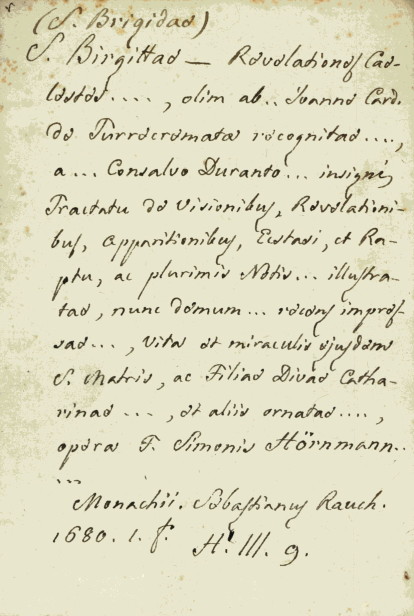 (S. Brigidae)
S. Birgittae — Revelationes Cae-
lestes...., olim ab.. Joanne Card.
de Turrecremata recognitae....,
a... Consalvo Duranto... insigni,
Tractatu de Visionibus, Revelationi-
bus, Apparitionibus, Ecstasi, et Ra-
ptu, ac plurimis Notis... illustra-
tae, nunc demum... recens impres-
sae..., Vita et miraculis ejusdem
S. Matris, ac Filiae Divae Catha-
rinae ...., et aliis ornatae....,
opera F. Simonis Hörnmann..
...
Monachii. Sebastianus Rauch.
1680. 1. f.
H. III. 9.